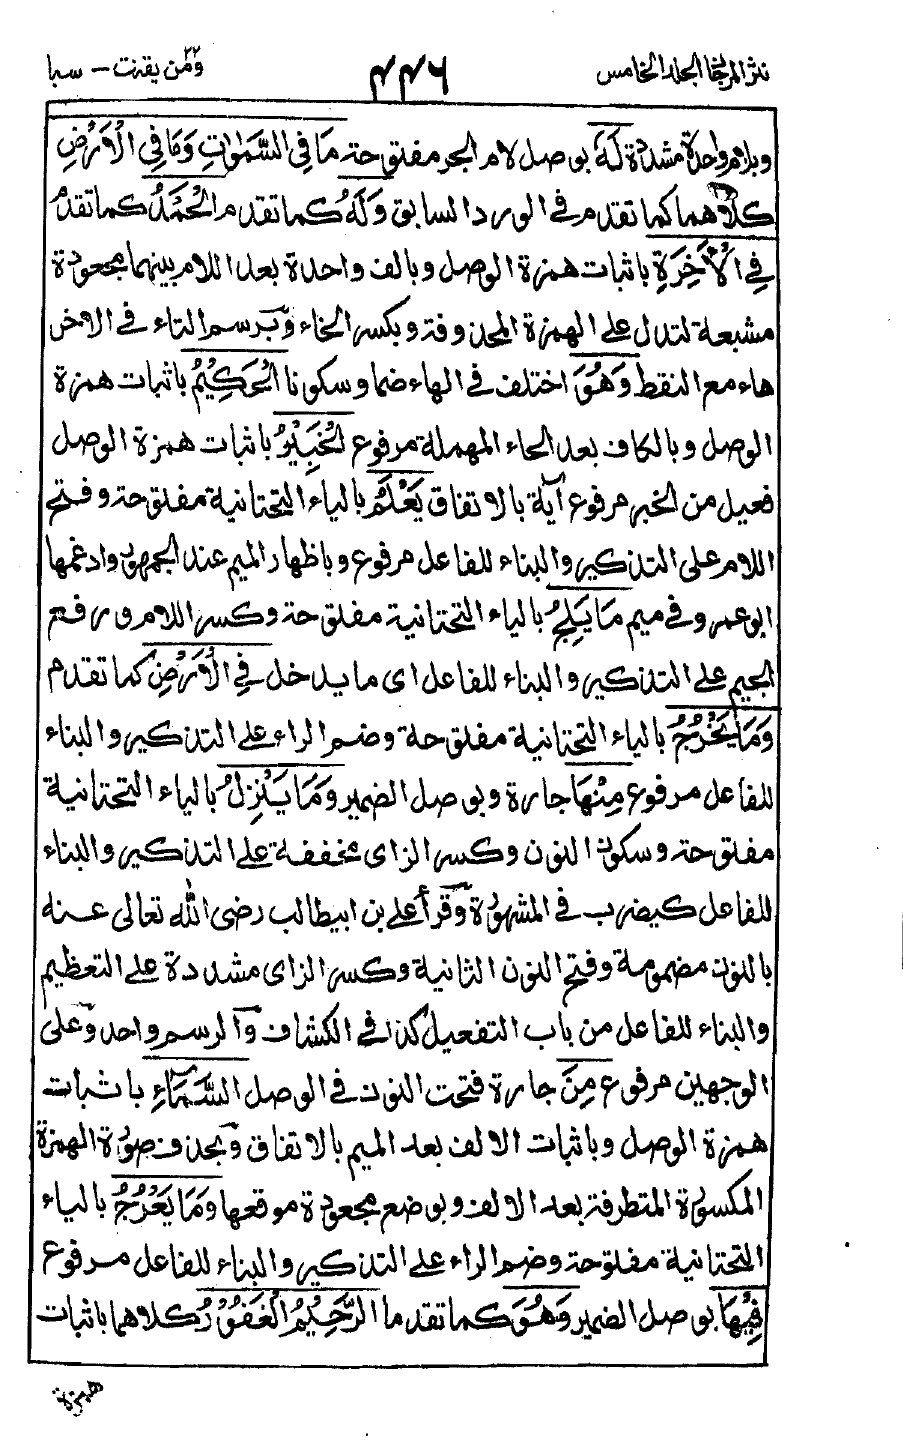 نثر المرجان الجلد الخامس
٤٤٦
ومن يقنت ٢٢ – سبا
وبلام واحدة مشددة لَهُ بوصل لام الجر مفتوحة مَا فِي السَّمٰوٰتِ وَمَا فِي الْاَرْضِ
كلاهما كما تقدم في الورد السابق وَلَهُ كما تقدم الْحَمْدُ كما تقدم
فِي الْاٰخِرَةِ باثبات همزة الوصل وبالف واحدة بعد اللام بينهما مجعودة
مشبعة لتدل على الهمزة المحذوفة وبكسر الخاء وبرسم التاء في الاخر
هاء مع النقط وَهُوَ اختلف في الهاء ضما وسكونا الْحَكِيْمُ باثبات همزة
الوصل وبالكاف بعد الحاء المهملة مرفوع الْخَبِيْرُ باثبات همزة الوصل
فعيل من الخبر مرفوع آية بالاتفاق يَعْلَمُ بالياء التحتانية مفتوحة وفتح
اللام على التذكير والبناء للفاعل مرفوع وباظهار الميم عند الجمهور وادغمها
ابو عمرو في ميم مَا يَلِجُ بالياء التحتانية مفتوحة وكسر اللام ورفع
الجيم على التذكير والبناء للفاعل اى ما يدخل فِي الْاَرْضِ كما تقدم
وَمَا يَخْرُجُ بالياء التحتانية مفتوحة وضم الراء على التذكير والبناء
للفاعل مرفوع مِنْهَا جارة وبوصل الضمير وَمَا يَنْزِلُ بالياء التحتانية
مفتوحة وسكون النون وكسر الزاى مخففة على التذكير والبناء
للفاعل كيضرب في المشهورة وقرأ علي بن ابيطالب رضى الله تعالى عنه
بالنون مضمومة وفتح النون الثانية وكسر الزاى مشددة على التعظيم
والبناء للفاعل من باب التفعيل كذا في الكشاف والرسم واحد وعلى
الوجهين مرفوع مِنَ جارة فتحت النون في الوصل السَّمَآءِ باثبات
همزة الوصل وباثبات الالف بعد الميم بالاتفاق وبحذف صورة الهمزة
المكسورة المتطرفة بعد الالف وبوضع مجعودة موقعها وَمَا يَعْرُجُ بالياء
التحتانية مفتوحة وضم الراء على التذكير والبناء للفاعل مرفوع
فِيْهَا بوصل الضمير وَهُوَ كما تقدم ما الرَّحِيْمُ الْغَفُوْرُ كلاهما باثبات
همزة